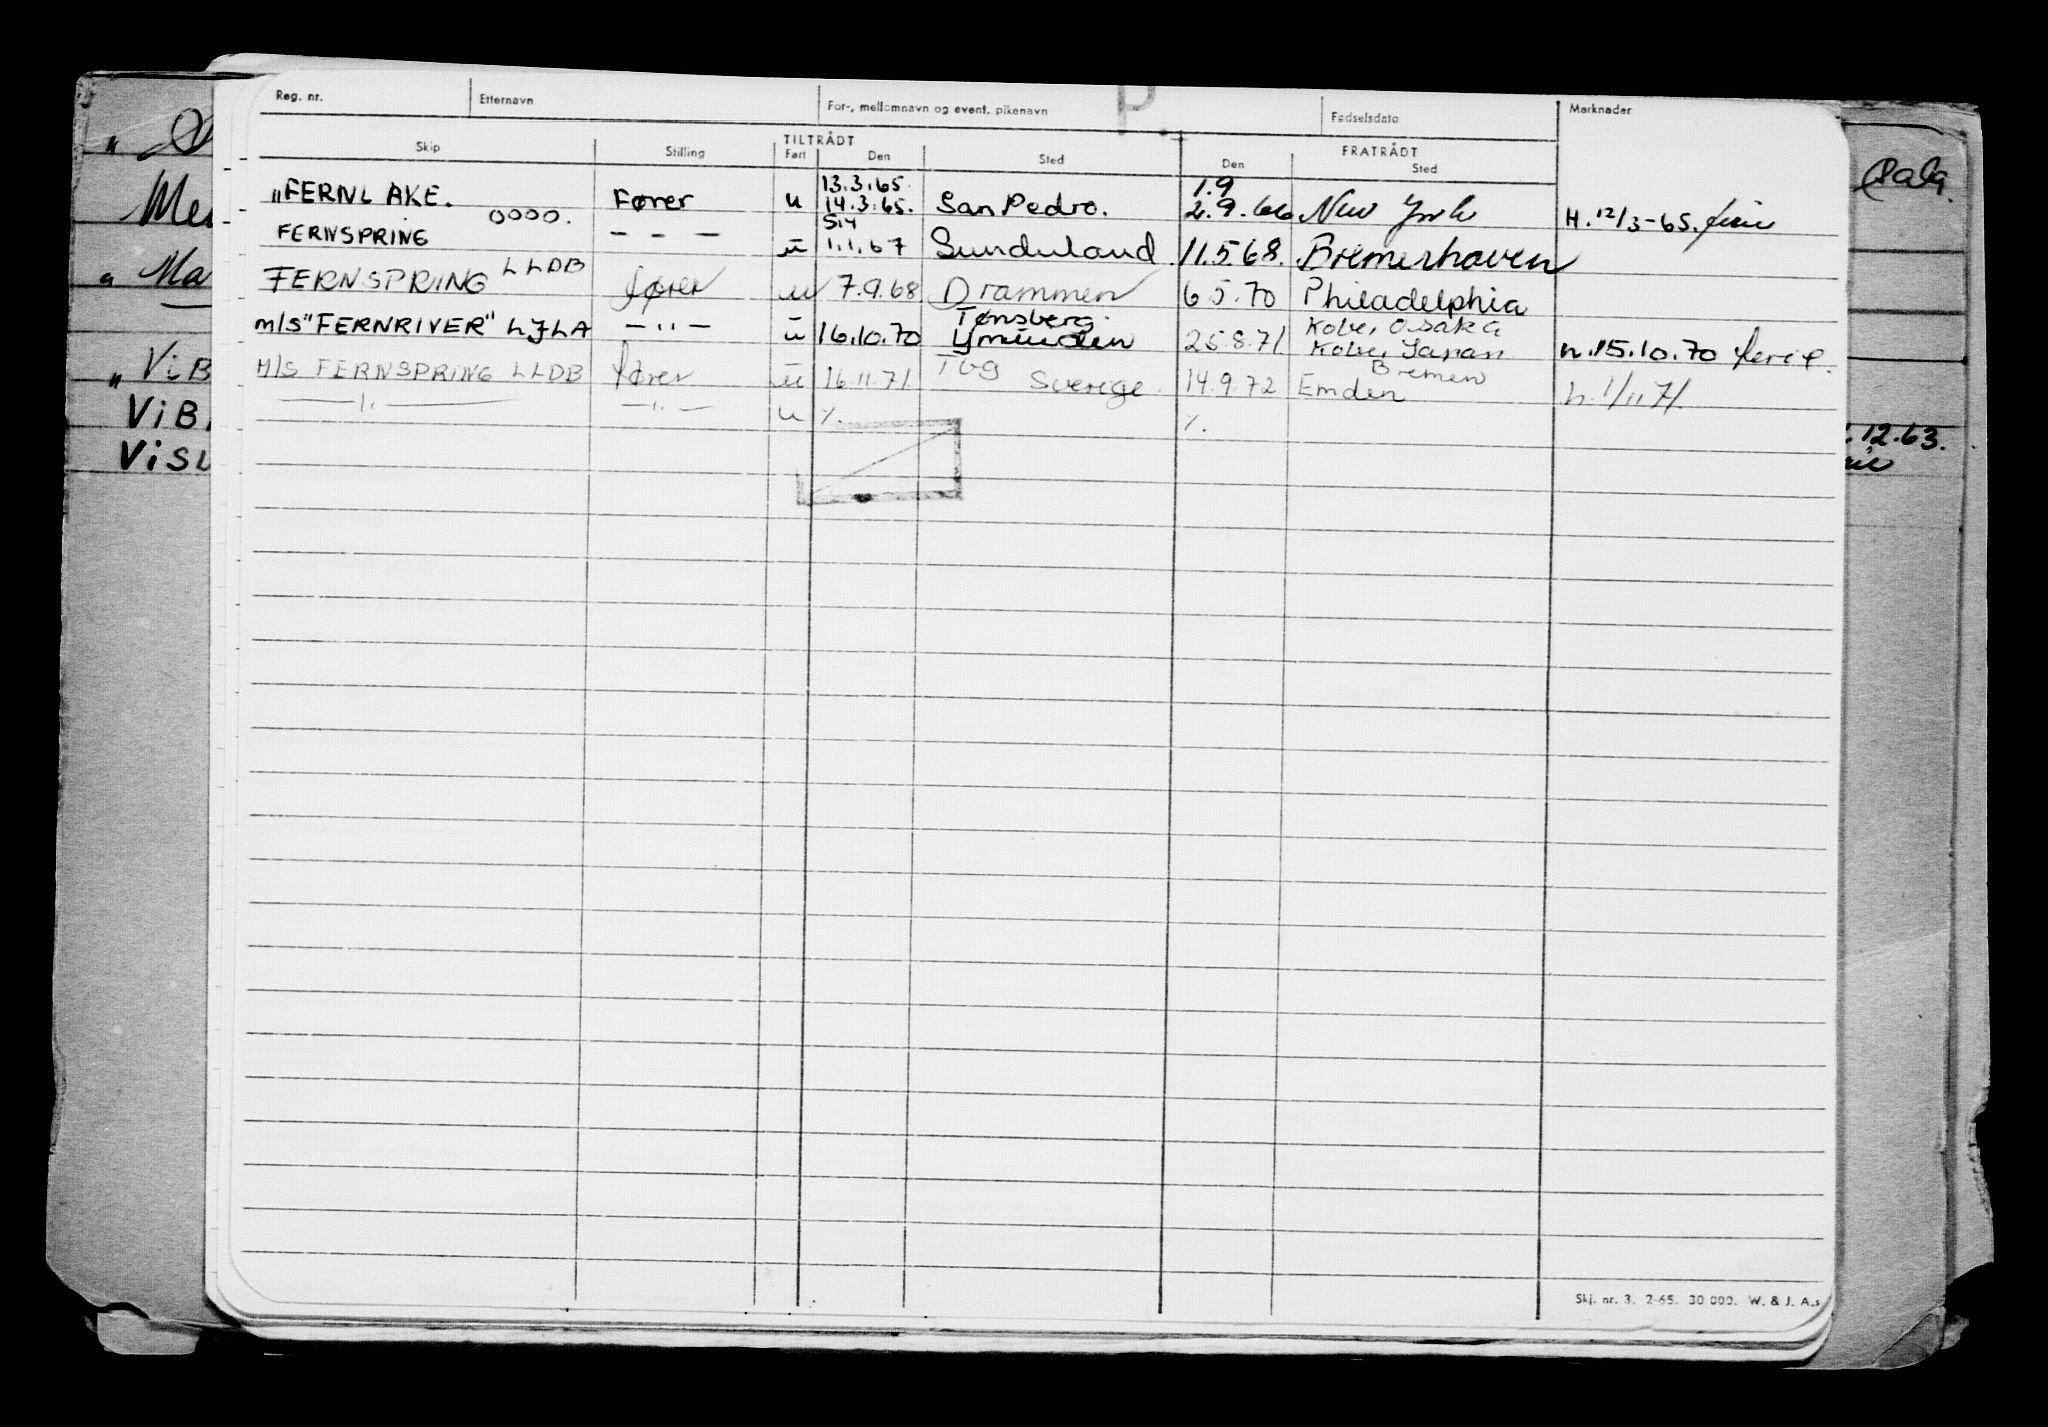 P.
Reg. nr. Etternavn For-, mellomnavn og event. pikenavn Fødselsdato Merknader
TILTRÅDT FRATRÅDT
Skip Stilling Fart Den Sted Den Sted
13.3.65. 1.9
"FERNLAKE. Fører u 14.3.65. San Pedro. 2.9.66 New York H. 12/3-65. ferie
0000.
FERNSPRING — - — u 1.1.67 Sunderland 11.5.68. Bremerhaven
FERNSPRING LLDB fører u 7.9.68 Drammen 6.5.70 Philadelphia
Tønsberg. Kobe, Osaka
m/s "FERNRIVER" LJLA —"— u 16.10.70 Ymuiden 25.8.71 Kobe, Japan h. 15.10.70 ferie.
Bremen
M/S FERNSPRING LLDB fører u 16.11.71 Sverige. 14.9.72 Emden h. 1/11 71.
—"— —"— u %. %.
" Ma
" ViB
ViB
ViSU
12.63.
Skj. nr. 3. 2-65. 30 000. W. & J. A.s